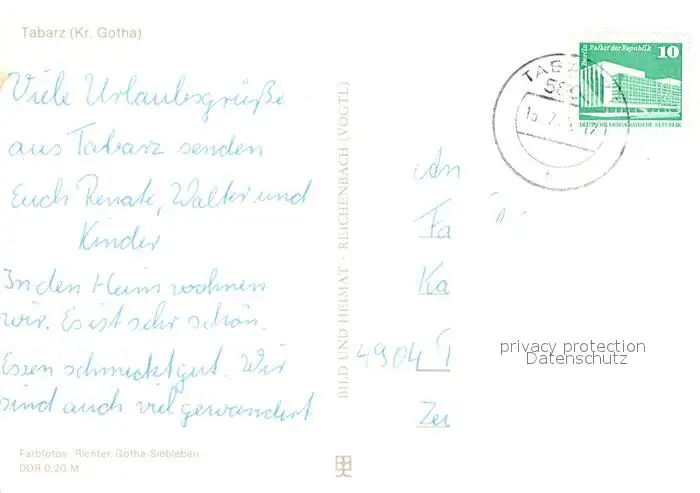 Tabarz (Kr. Gotha)
Viele Urlaubsgrüße
aus Tabarz senden
Euch Renate, Walter und
Kinder
In den Heim wohnen
wir. Es ist sehr schön.
Essen schmeckt gut. Wir
sind auch viel gewandert
Farbfotos: Richter, Gotha-Siebleben
DDR 0,20 M
BILD UND HEIMAT · REICHENBACH (VOGTL)
Berlin Palast der Republik 10
DEUTSCHE DEMOKRATISCHE REPUBLIK
An
Fa
Ka
4904
privacy protection
Datenschutz